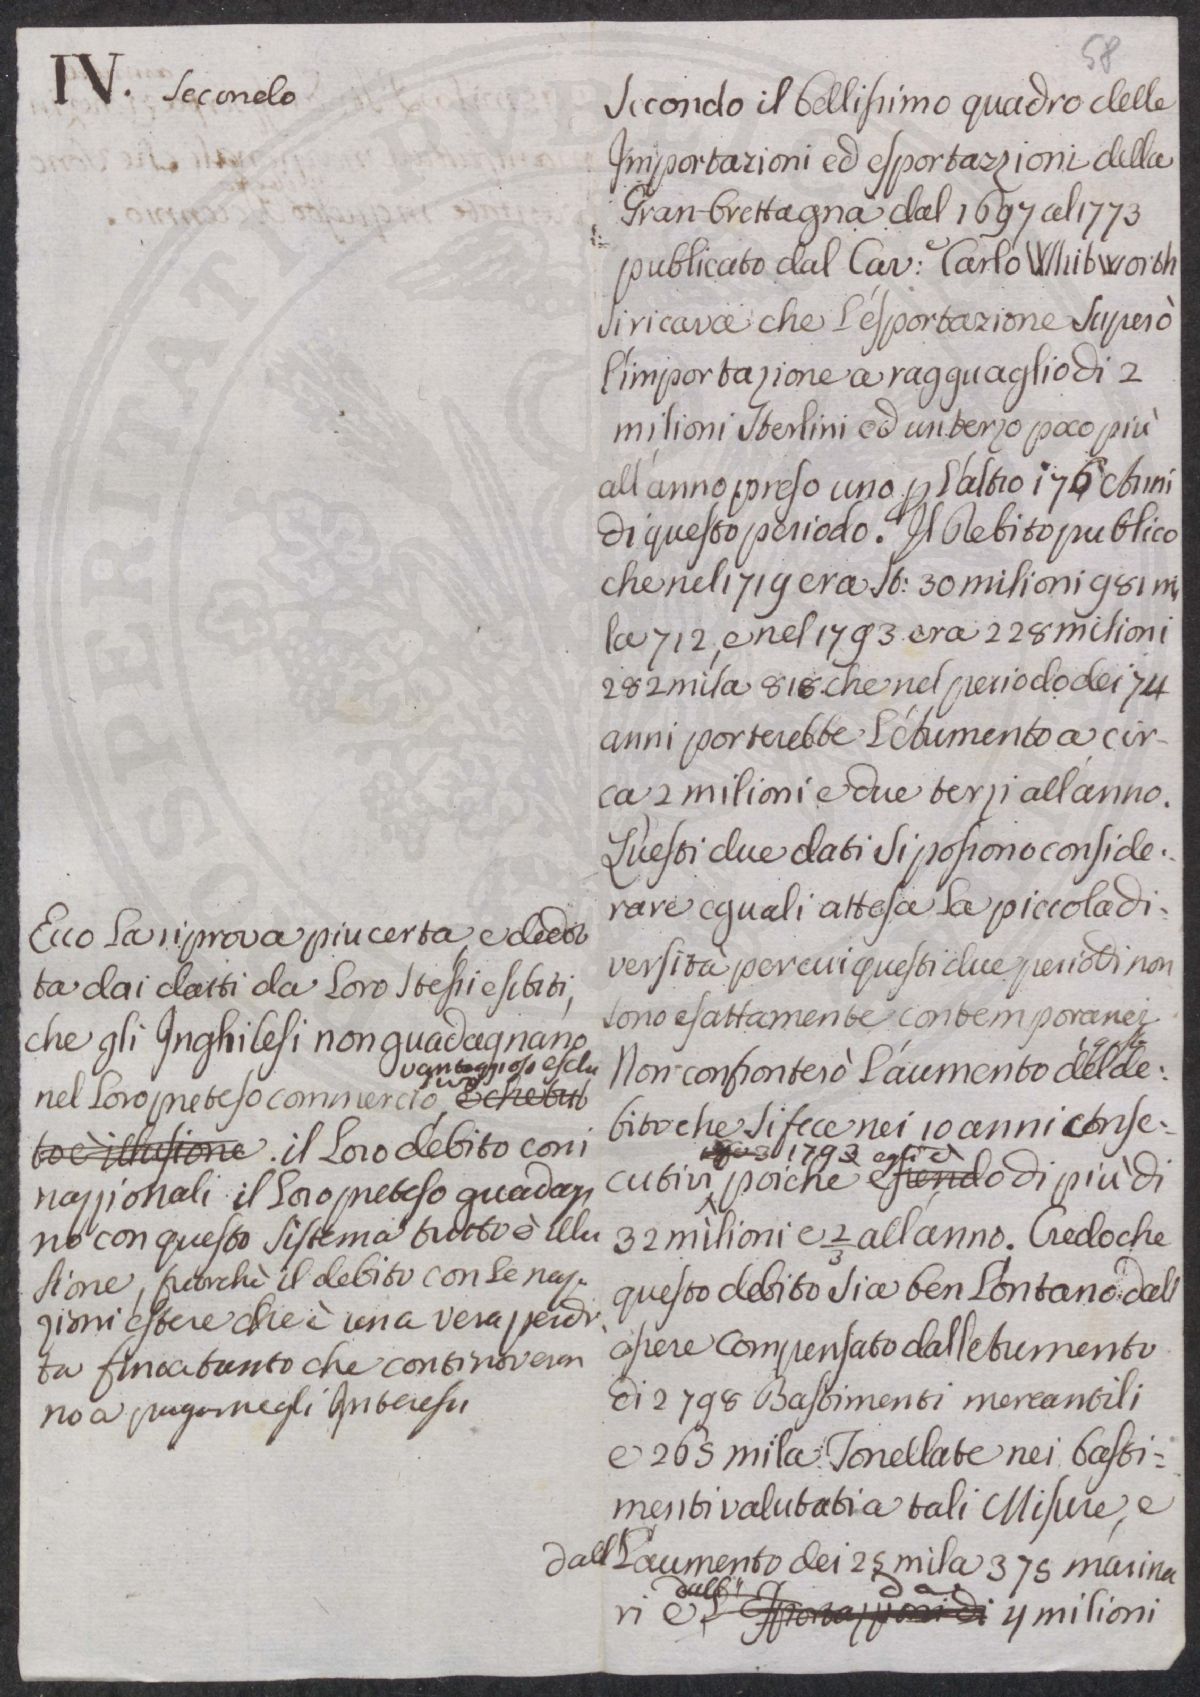 58
IV. Secondo
Secondo il bellissimo quadro delle
Importazioni ed esportazzioni della
Gran-brettagna dal 1697 al 1773
publicato dal Cav:e Carlo Whitworth
si ricava che l'esportazione superò
l'importazione a ragguaglio di 2
milioni Sterlini ed un terzo poco più
all'anno preso uno p l'altro i 76 Anni
di questo periodo. Il Debito publico
che nel 1719 era St: 30 milioni 981 mi
la 712, e nel 1793 era 228 milioni
282 mila 818 che nel periodo dei 74
anni porterebbe l'Aumento a cir-
ca 2 milioni e due terzi all'anno.
Questi due dati si possono conside-
rare eguali attesa la piccola di-
versità per cui questi due periodi non
sono esattamente contemporanei
Non confronterò l'aumento del de:
bito che si fece nei 10 anni conse-
cutivi 1793 poiche egli è essendo di più di
32 milioni e 2/3 all'anno. Credo che
questo debito sia ben lontano dall
essere compensato dall Aumento
di 2798 Bastimenti mercantili
e 265 mila Tonellate nei basti=
menti valutati a tali Misure, e
dall L'aumento dei 25 mila 375 marina
ri e dall' da Esportazzioni di 4 milioni
Ecco la riprova piu certa, e dedot
ta dai datti da loro stessi esibiti,
che gli Inghilesi non guadagnano
vantaggioso esclu
sivo
nel loro preteso commercio, e che tut
to è illusione. il loro debito coni
nazzionali il loro preteso guadag
no con questo sistema tutto è illu
sione, fuorchè il debito con le naz-
zioni estere che è una vera perdi
ta fino a tanto che continoveran
no a pagarne gli Interessi